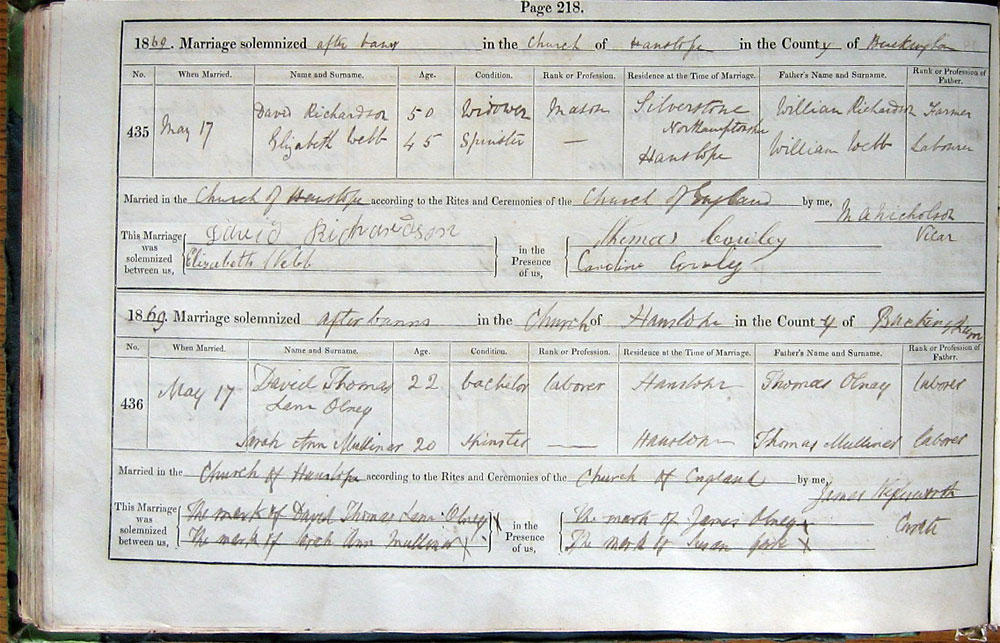 Page 218.
1869. Marriage solemnized after banns in the Church of Hanslope in the County of Buckingham
No. When Married. Name and Surname. Age. Condition. Rank or Profession. Residence at the Time of Marriage. Father's Name and Surname. Rank or Profession of Father.
435 May 17 David Richardson 50 Widower Mason Silverstone Northamptonshire William Richardson Farmer
Elizabeth Webb 45 Spinster — Hanslope William Webb Labourer
Married in the Church of Hanslope according to the Rites and Ceremonies of the Church of England by me, M A Nicholson
Vicar
This Marriage was solemnized between us, David Richardson in the Presence of us, Thomas Cowley
Elizabeth Webb Caroline Cowley
1869. Marriage solemnized after banns in the Church of Hanslope in the County of Buckingham
No. When Married. Name and Surname. Age. Condition. Rank or Profession. Residence at the Time of Marriage. Father's Name and Surname. Rank or Profession of Father.
436 May 17 David Thomas Lane Olney 22 bachelor laborer Hanslope Thomas Olney laborer
Sarah Ann Mulliner 20 Spinster — Hanslope Thomas Mulliner laborer
Married in the Church of Hanslope according to the Rites and Ceremonies of the Church of England by me, James
Curate
This Marriage was solemnized between us, The mark of David Thomas Lane Olney X in the Presence of us, The mark of James Olney X
The mark of Sarah Ann Mulliner X The mark of Susan X